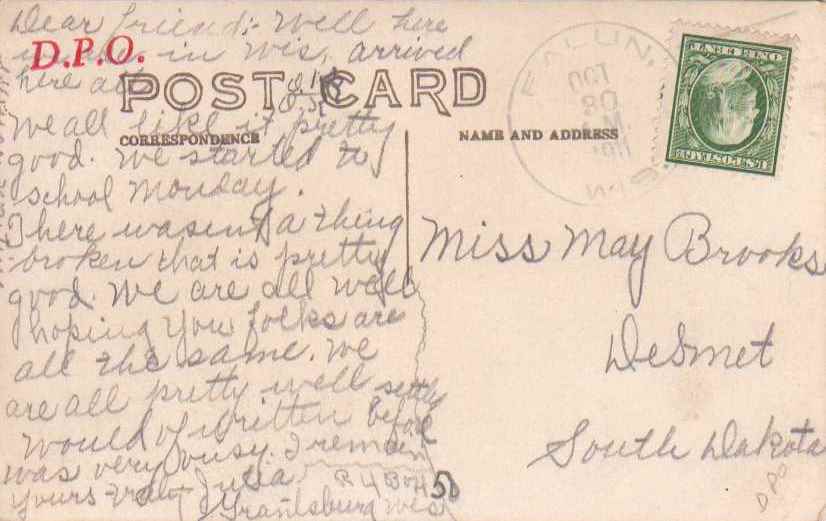 Dear Friend:- Well here
in Wis, arrived
D.P.O.
here
POST CARD
We all like it pretty
CORRESPONDENCE
NAME AND ADDRESS
good. We started to
school Monday.
There wasent a thing
broken that is pretty
good. We are all well
hoping you folks are
all the same. We
are all pretty well settly
would of written before
was very busy. I remain
yours Julia
R 4 Box 50
Grantsburg Wis
FALUN,
OCT
30
WIS.
U.S. POSTAGE
ONE CENT
Miss May Brooks
DeSmet
South Dakota
DPO